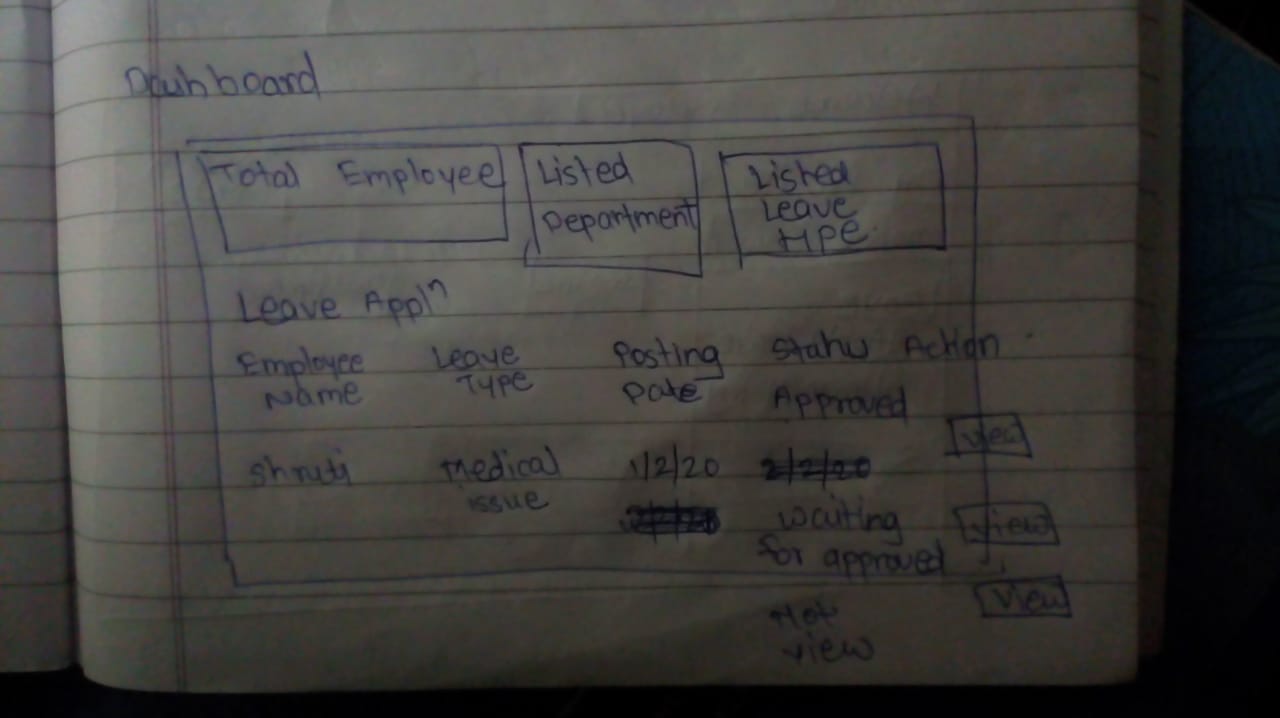 Dashboard
Total Employee
Listed
Department
Listed
Leave
type
Leave Appln
Employee Name
Leave Type
Posting Date
Status
Action
Approved
view
Shruti
Medical issue
1/2/20
waiting
for approved
view
Not
view
view